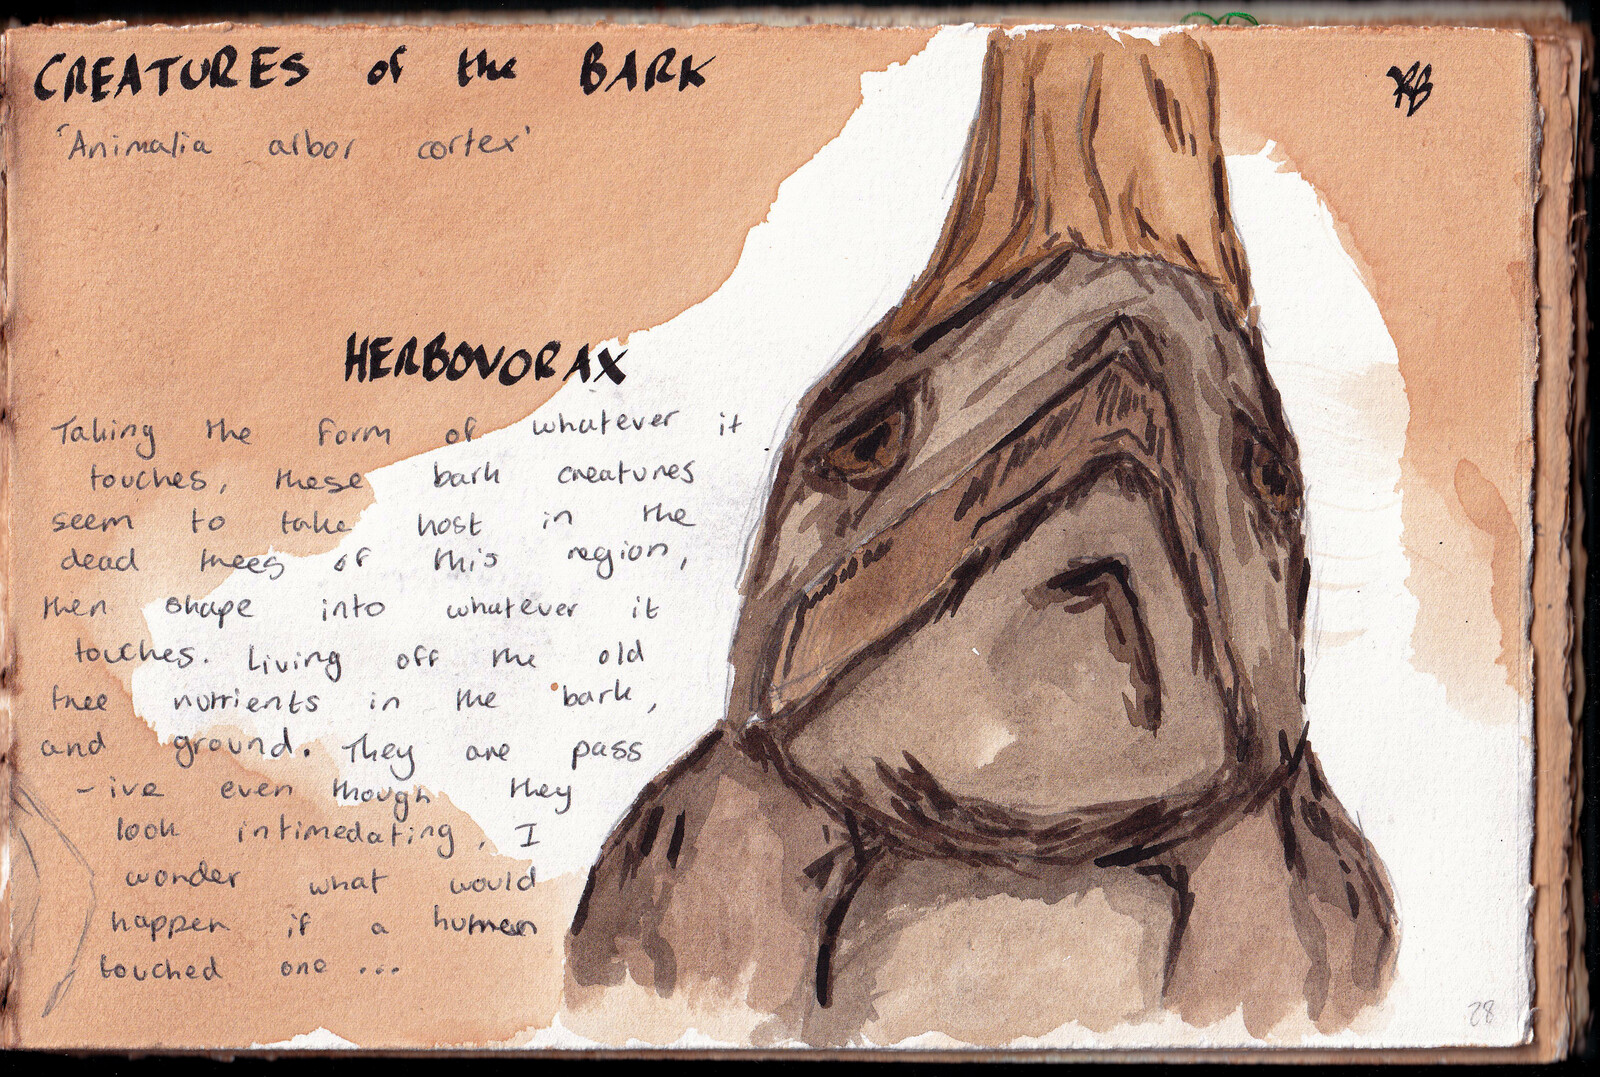 CREATURES of the BARK
'Animalia arbor cortex'
HERBOVORAX
Taking the form of whatever it
touches, these bark creatures
seem to take host in the
dead trees of this region,
then shape into whatever it
touches. Living off the old
tree nutrients in the bark,
and ground. They are pass
-ive even though they
look intimedating, I
wonder what would
happen if a human
touched one ...
RB
28